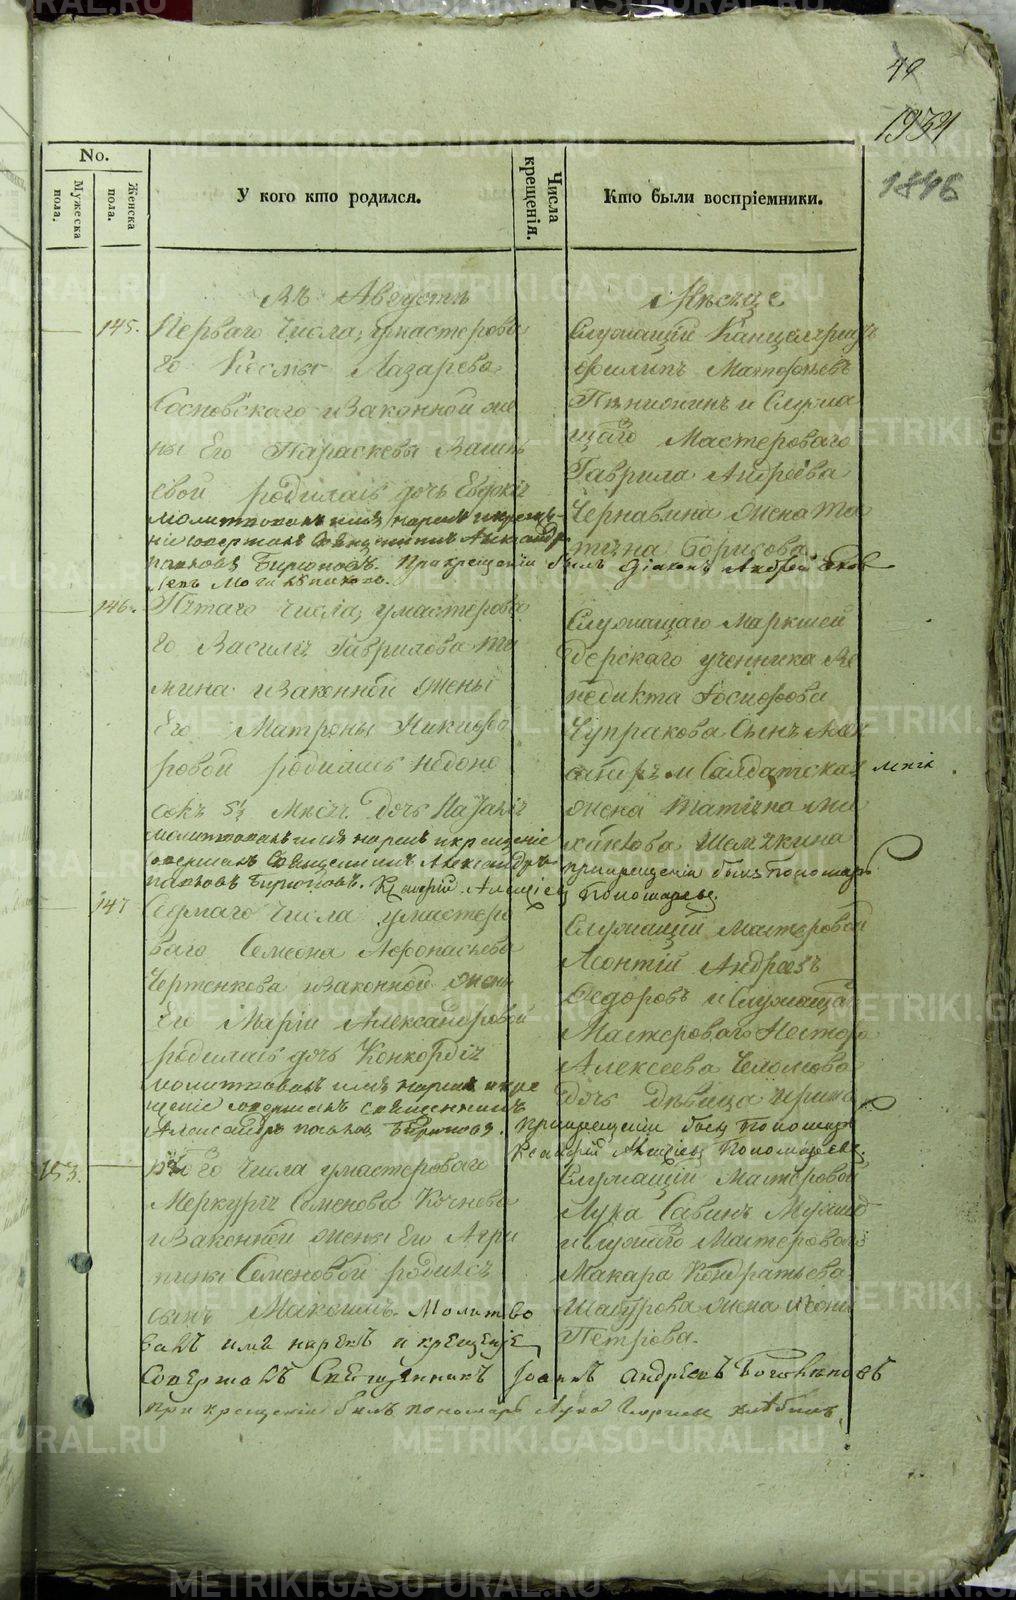 49
1934
1846
No.
Мужеска пола.
Женска пола.
У кого кто родился.
Числа крещенія.
Кто были воспріемники.
Въ Августѣ
Мѣсяце
145.
Перваго числа, у мастерова
го Космы Лазарева
Сосновскаго и законной же
ны Его Параскевы Васи
евой родилась дочь Евдокія
молитвовалъ имя нарекъ и креще
ніе совершалъ Священникъ Александръ
Павловъ Бирюковъ. При крещеніи былъ Діаконъ Андрей
Служащій Канцеляристъ
Филипъ Матфѣевъ
и Служа
щаго Мастероваго
Гаврила Андреева
Чернавина жена Та
тіяна Борисова
146.
Пятаго числа, у мастерова
го Василія Гаврилова То
мина и законной жены
Его Матроны Никифо
ровой родилась недоно
сокъ 5½ мѣсяч. дочь Наталія
молитвовалъ имя нарекъ и крещеніе
совершалъ Священникъ Александръ
Павловъ Бирюковъ.
при крещеніи былъ пономарь
Пономаревъ.
Служащаго Маркшей
дерскаго ученика Ве
недикта Іосифова
Чупракова Сынъ Алек
сандръ и Салдатская
жена Татіяна Ми
хайлова Шемякина
147
Седмаго числа у мастеро
ваго Семена Афонасьева
Чертенкова и законной жены
Его Маріи Александровой
родилась дочь Конкордія
молитвовалъ имя нарекъ и кре
щеніе совершалъ священникъ
Александръ Павловъ Бирюковъ.
При крещеніи былъ Пономарь
Служащій Мастеровой
Леонтій Андреевъ
Федоровъ и Служаща
Мастероваго Нестора
Алексеева
дочь дѣвица Ирина
153.
числа у мастероваго
Меркурія Семенова Кочнева
и законной жены Его Агри
пины Семеновой родился
сынъ Максимъ. Молитво
валъ имя нарекъ и крещеніе
Совершалъ Священникъ Іоаннъ Андреевъ Боголѣповъ
при крещеніи былъ пономарь Лука
Служащій Мастеровой
Лука Савинъ
и служаго Мастероваго
Макара Кондратьева
Шатрова жена
Петрова.
METRIKI.GASO-URAL.RU